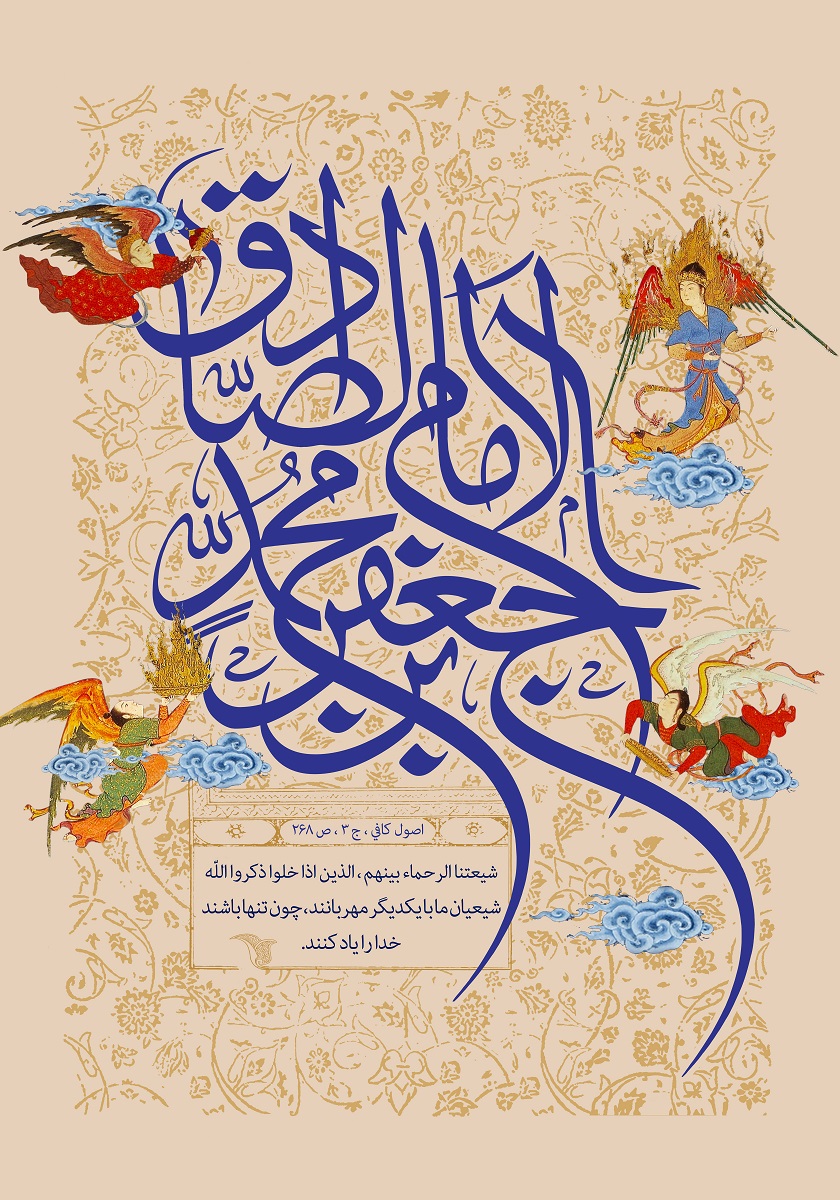 الامام
جعفر بن
محمد
الصادق
اصول كافي ، ج ۳ ، ص ۲۶۸
شيعتنا الرحماء بينهم ، الذين اذا خلوا ذكروا الله
شیعیان ما با یکدیگر مهربانند، چون تنها باشند
خدا را یاد کنند.